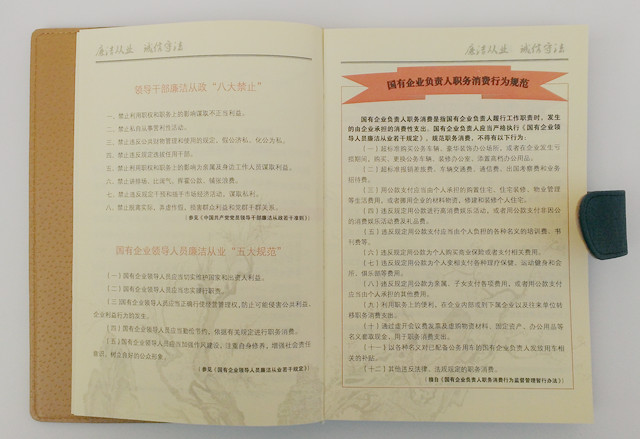 廉洁从业 诚信守法
领导干部廉洁从政“八大禁止”
一、禁止利用职权和职务上的影响谋取不正当利益。
二、禁止私自从事营利性活动。
三、禁止违反公共财物管理和使用的规定，假公济私、化公为私。
四、禁止违反规定选拔任用干部。
五、禁止利用职权和职务上的影响为亲属及身边工作人员谋取利益。
六、禁止讲排场、比阔气、挥霍公款、铺张浪费。
七、禁止违反规定干预和插手市场经济活动，谋取私利。
八、禁止脱离实际，弄虚作假，损害群众利益和党群干群关系。
（参见《中国共产党党员领导干部廉洁从政若干准则》）
国有企业领导人员廉洁从业“五大规范”
（一）国有企业领导人员应当切实维护国家和出资人利益。
（二）国有企业领导人员应当忠实履行职责。
（三）国有企业领导人员应当正确行使经营管理权，防止可能侵害公共利益、
企业利益行为的发生。
（四）国有企业领导人员应当勤俭节约，依据有关规定进行职务消费。
（五）国有企业领导人员应当加强作风建设，注重自身修养，增强社会责任
意识，树立良好的公众形象。
（参见《国有企业领导人员廉洁从业若干规定》）
廉洁从业 诚信守法
国有企业负责人职务消费行为规范
国有企业负责人职务消费是指国有企业负责人履行工作职责时，发生
的由企业承担的消费性支出。国有企业负责人应当严格执行《国有企业领
导人员廉洁从业若干规定》，规范职务消费，不得有以下行为：
（一）超标准购买公务车辆、豪华装饰办公场所，或者在企业发生亏
损期间，购买、更换公务车辆、装修办公室、添置高档办公用品。
（二）超标准报销差旅费、车辆交通费、通信费、出国考察费和业务
招待费。
（三）用公款支付应当由个人承担的购置住宅、住宅装修、物业管理
等生活费用，或者挪用企业的材料物资，修建和装修个人住宅。
（四）违反规定用公款进行高消费娱乐活动，或者用公款支付非因公
的消费娱乐活动费及礼品费。
（五）违反规定用公款支付应当由个人负担的各种名义的培训费、书
刊费等。
（六）违反规定用公款为个人购买商业保险或者支付相关费用。
（七）违反规定用公款为个人变相支付各种理疗保健、运动健身和会
所、俱乐部等费用。
（八）违反规定用公款为亲属、子女支付各项费用，或者用公款支付
应当由个人承担的其他费用。
（九）利用职务上的便利，在企业内部或到下属企业以及往来单位转
移职务消费支出。
（十）通过虚开会议费发票及虚购物资材料、固定资产、办公用品等
名义套取现金，用于职务消费支出。
（十一）以各种名义对已配备公务用车的国有企业负责人发放用车相
关的补贴。
（十二）其他违反法律、法规规定的职务消费。
（摘自《国有企业负责人职务消费行为监督管理暂行办法》）